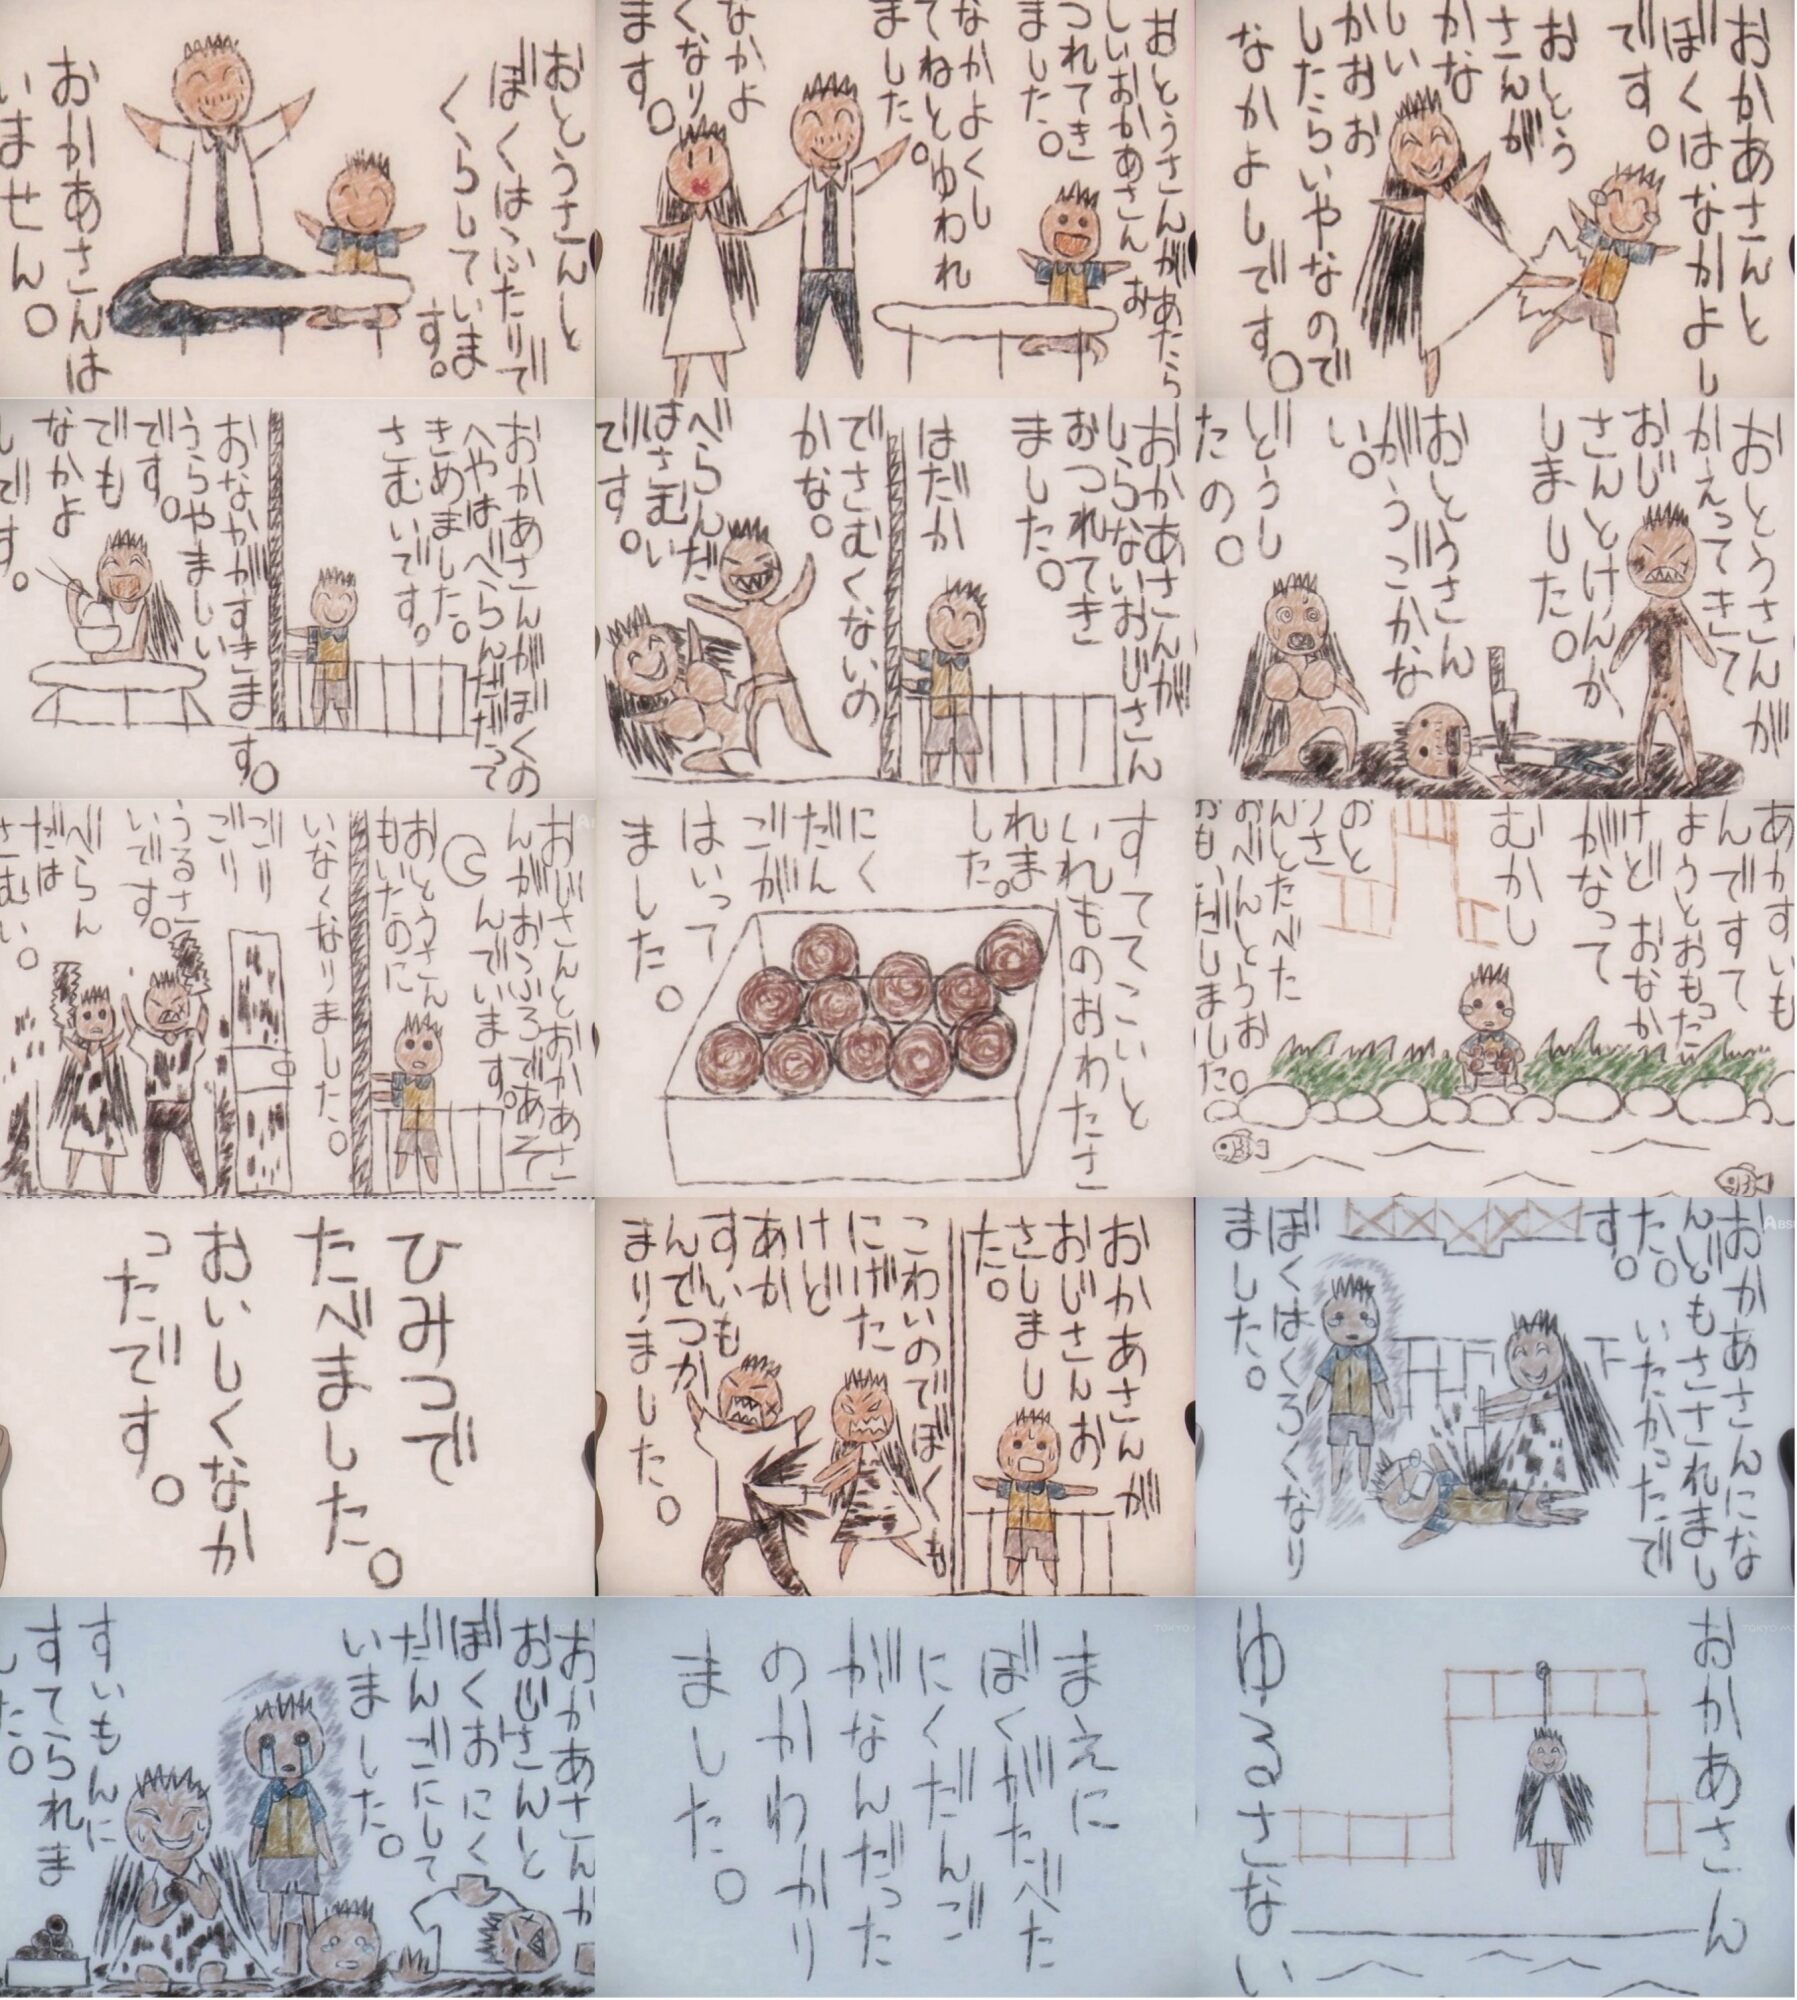 おとうさんと
ぼくはふたりで
くらしていま
す。
おかあさんは
いません。
おとうさんがあたら
しいおかあさんお
つれてき
ました。
なかよくし
てねとゆわれ
ました。
なかよ
くなり
ます。
おかあさんと
ぼくはなかよし
です。
おとう
さんが
かな
しい
かおお
したらいやなので
なかよしです。
おかあさんがぼくの
へやはべらんだだって
きめました。
さむいです。
おなかがすきます。
うらやましい
です。
でも
なかよ
しです。
おかあさんが
しらないおじさん
おつれてき
ました。
はだか
でさむくないの
かな。
べらんだ
はさむい
です。
おとうさんが
かえってきて
おじ
さんとけんか
しました。
おとうさん
がうごかな
い。
どうし
たの。
おじさんとおかあさ
んがおふろであそ
んでいます。
おとうさん
もいたのに
いなくなりました。
ごり
ごり
うるさ
いです。
べらん
だは
さむい。
すててこいと
いれものおわたさ
れま
した。
にく
だん
ごが
はいって
ました。
あかすいも
んですて
ようとおもった
けどおなか
がなって
むかし
おと
うさ
んとたべた
おべんとうお
おもいだしました。
ひみつで
たべました。
おいしくなか
ったです。
おかあさんが
おじさんお
さしまし
た。
こわいのでぼくも
にげた
けど
あか
すいも
んでつか
まりました。
おかあさんにな
んどもさされまし
た。
いたかったで
す。
ぼくはくろくなり
ました。
おかあさんが
おじさんと
ぼくおにく
だんごにして
いました。
すいもんに
すてられま
した。
まえに
ぼくがたべた
にくだんご
がなんだった
のかわかり
ました。
TOKYO M
おかあさん
ゆるさない